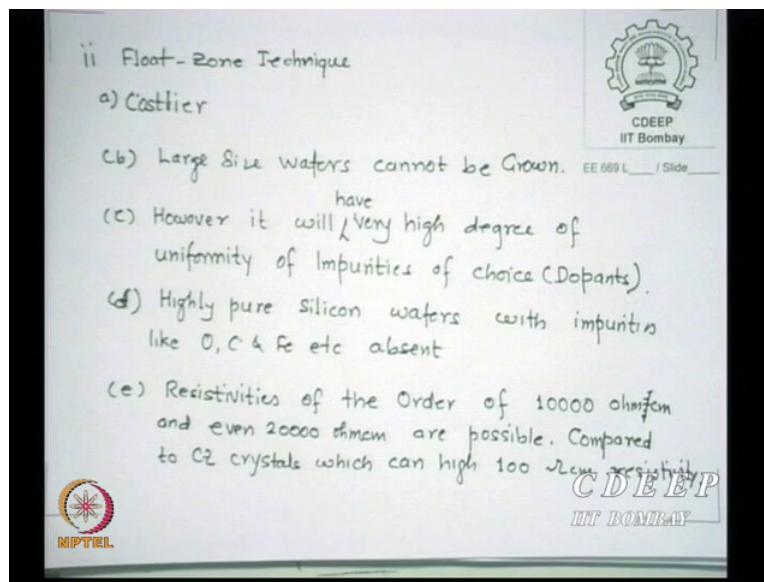 ii Float-Zone Technique
a) Costlier
(b) Large Size wafers cannot be Grown.
have
(c) However it will very high degree of
uniformity of Impurities of choice (Dopants).
(d) Highly pure Silicon wafers with impurities
like O, C & Fe etc absent
(e) Resistivities of the Order of 10000 ohm cm
and even 20000 ohmcm are possible. Compared
to CZ crystals which can high 100 Ωcm resistivity
CDEEP
IIT Bombay
EE 669 L____ / Slide____
CDEEP
IIT BOMBAY
NPTEL